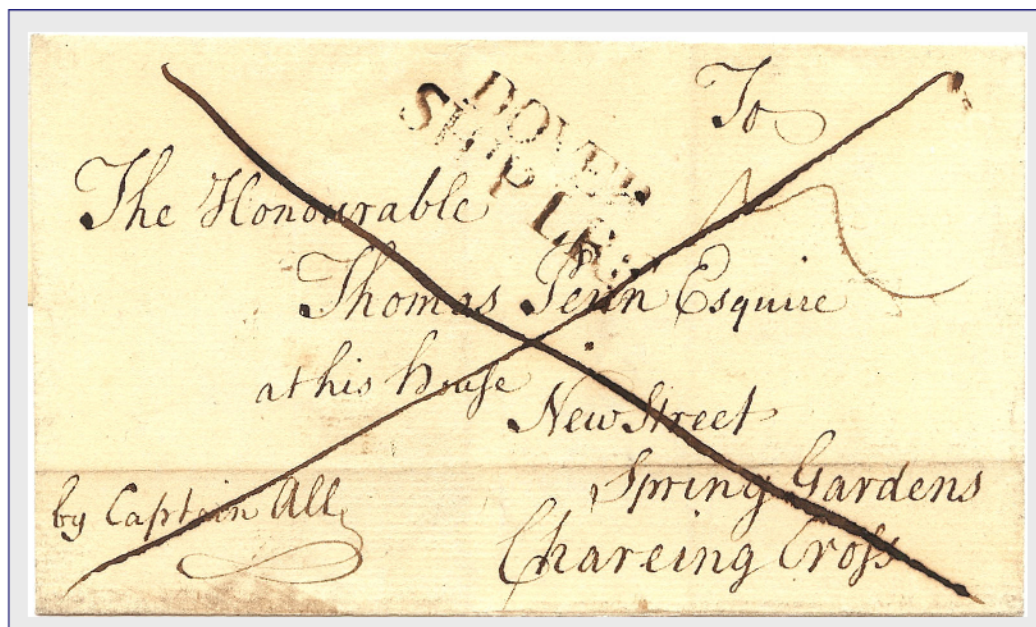 To
DOVER
SHIP LR:
The Honourable
Thomas Penn Esquire
at his house
New Street
Spring Gardens
Chareing Cross
by Captain All